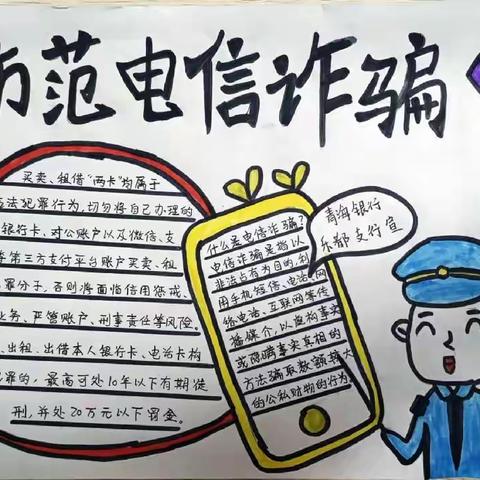 防范电信诈骗
买卖、租借“两卡”均属于
违法犯罪行为,切勿将自己办理的
银行卡、对公账户以及微信、支
等第三方支付平台账户买卖、租
罪分子,否则将面临信用惩戒、
业务、严管账户、刑事责任等风险。
、出租、出借本人银行卡、电话卡构
犯罪的,最高可处10年以下有期徒
刑,并处20万元以下罚金。
什么是电信诈骗?
电信诈骗是指以
非法占有为目的,利
用手机短信、电话、网
络电话、互联网等传
播媒介,以虚构事实
或隐瞒事实真相的
方法骗取数额较大
的公私财物的行为
青海银行
乐都支行宣